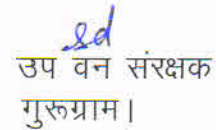 sd
उप वन संरक्षक
गुरूग्राम।